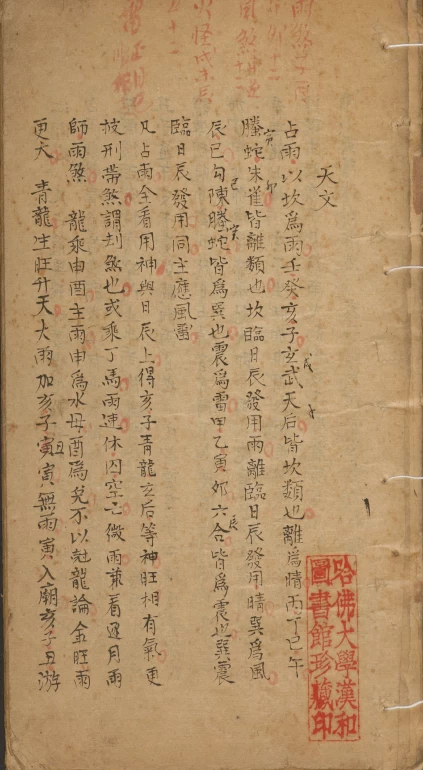 天文
占雨以坎為雨壬癸亥子玄武天后皆坎類也離為晴丙丁巳午
螣蛇朱雀皆離類也坎臨日辰發用雨離臨日辰發用晴巽為風
辰巳勾陳螣蛇皆為巽也震為雷甲乙寅卯六合皆為震也巽震
臨日辰發用同主應風雷
凡占雨全看用神與日辰上得亥子青龍玄后等神旺相有氣更
披刑帶煞謂刦煞也或乘丁馬雨速休囚空亡微雨兼看逐月雨
師雨煞 龍乘申酉主雨申為水母酉為兌不以尅龍論金旺雨
更大 青龍生旺升天大雨加亥子寅丑寅無雨寅入廟亥子丑游
哈佛大學漢和
圖書館珍藏印